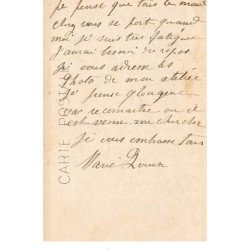 je pense que tous le monde
chez vous se porte quand
moi je suis tres fatigue
J'aurai besoin de repos
je vous adresse les
Photo de mon atelier
je pense
reconnaitre ou
est venu me chercher
je vous embrasse tous
Marie
CARTE POS